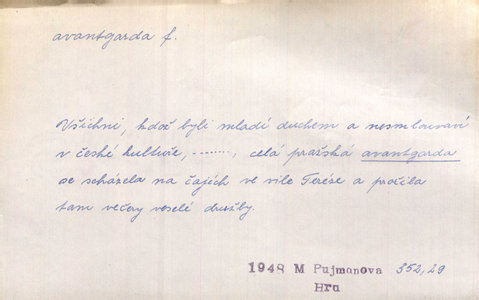 avantgarda f.
Všichni, kdož byli mladí duchem a nesmlouvaví
v české kultuře, ........, celá pražská avantgarda
se scházela na čajích ve vile Teréze a
tam večery veselé družby.
1948 M Pujmanova 352,29
Hru